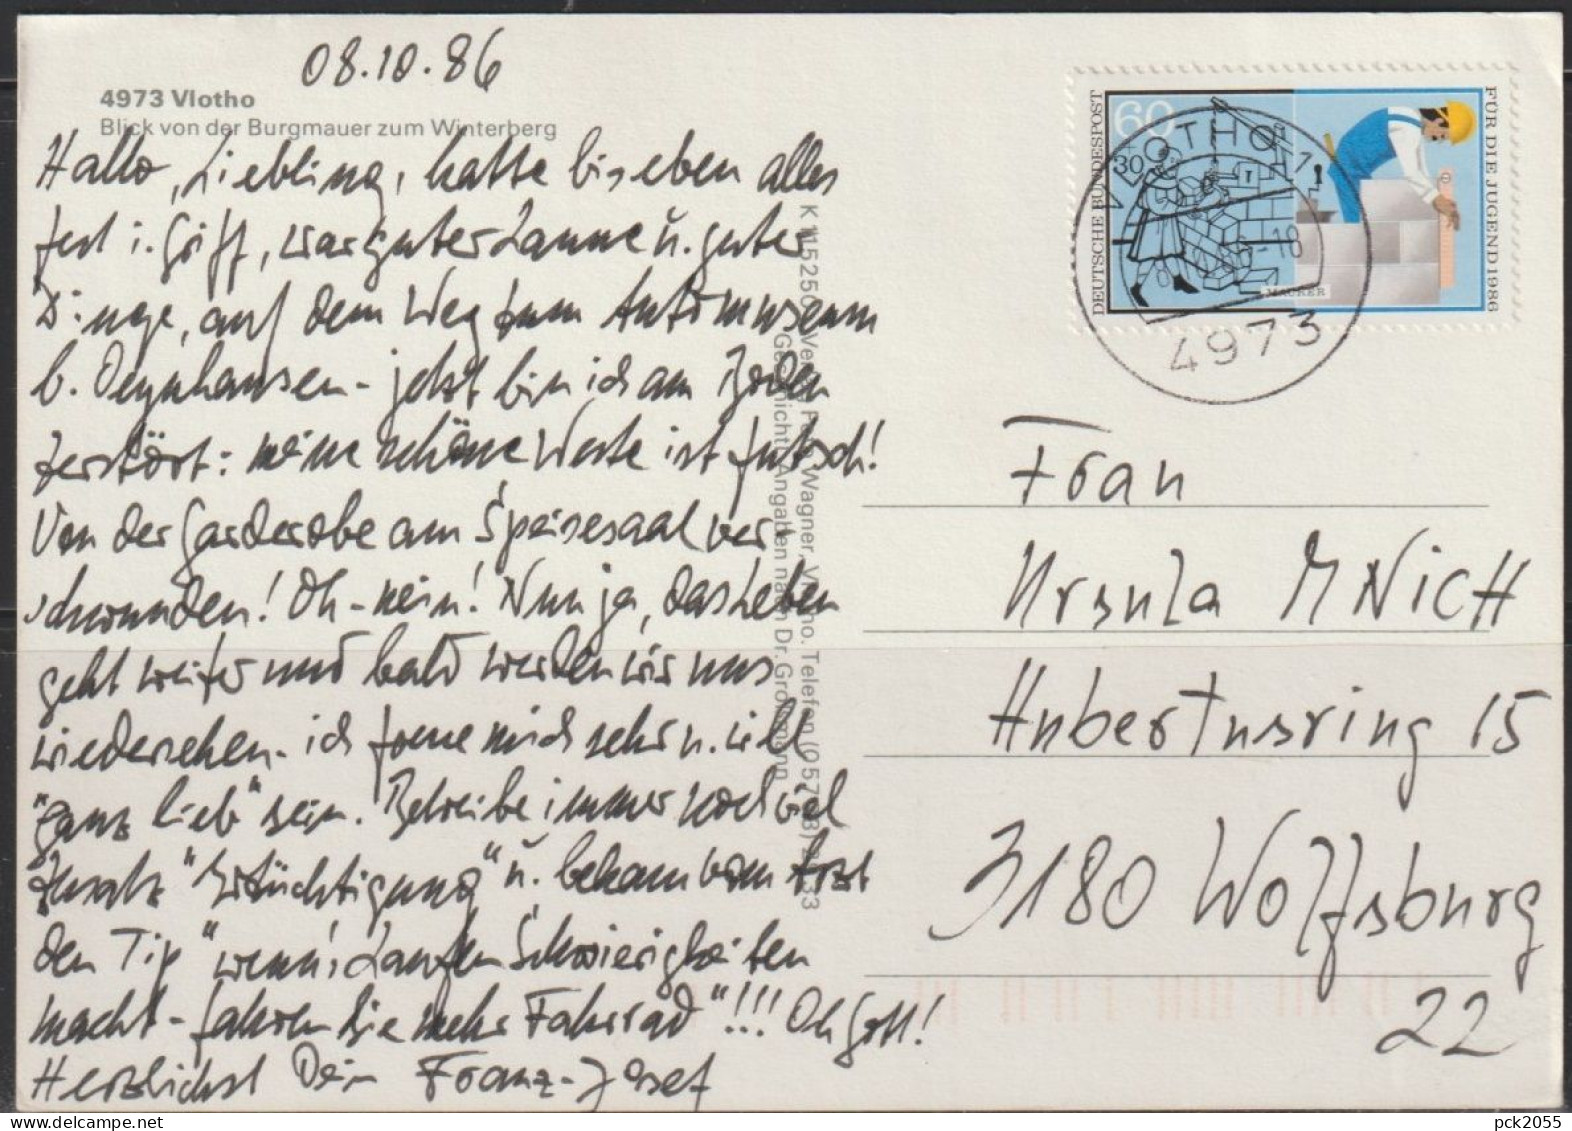 08.10.86
4973 Vlotho
Blick von der Burgmauer zum Winterberg
Hallo, Liebling, hatte bis eben alles
fest i. Griff, war guter Laune u. guter
Dinge, auf dem Weg zum Automuseum
b. Oeynhausen - jetzt bin ich am Boden
zerstört: meine schöne Weste ist futsch!
Von der Garderobe am Speisesaal ver
schwunden! Oh - nein! Nun ja, das Leben
geht weiter und bald werden wir uns
wiedersehen. ich freue mich sehr u. will
"ganz lieb" sein. Betreibe immer noch viel
Zusatz "Ertüchtigung" u. bekam vom Arzt
den Tip "wenn's Laufen Schwierigkeiten
macht - fahren Sie mehr Fahrrad"!!! Oh Gott!
Herzlichst Dein Franz-Josef
Wagner, Vlotho. Telefon
Angaben nach Dr. Großmann
DEUTSCHE BUNDESPOST
60
+
30
FÜR DIE JUGEND 1986
MAURER
VLOTHO 1
4973
Frau
Ursula MNiCH
Hubertusring 15
3180 Wolfsburg
22
pck2055